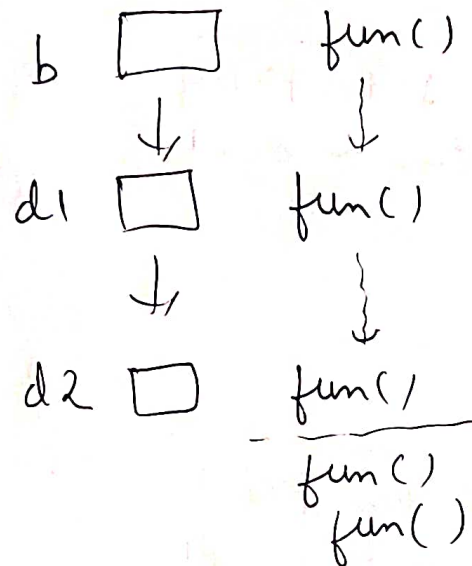 b fun()
d1 fun()
d2 fun()
fun()
fun()